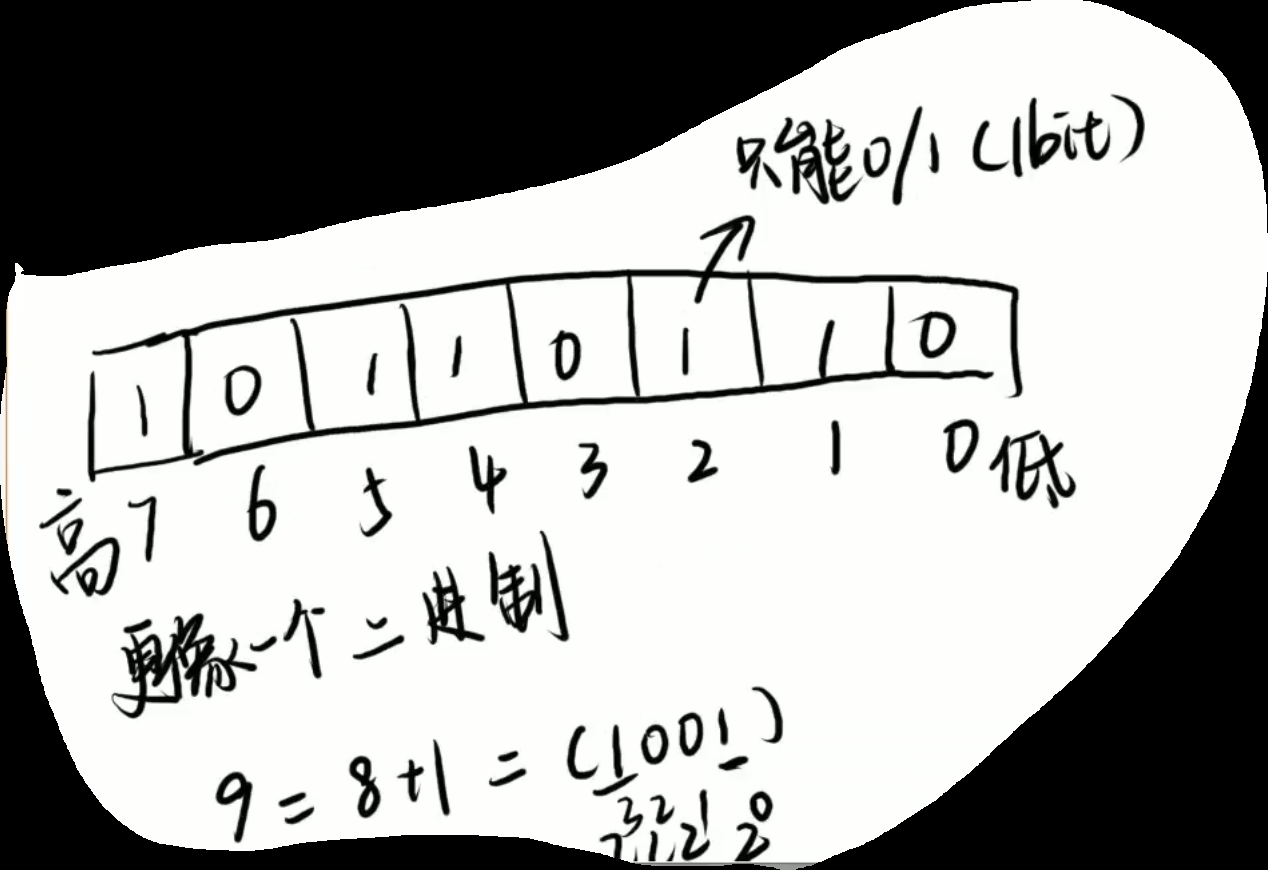 只能0/1 (1bit)
1 0 1 1 0 1 1 0
高 7 6 5 4 3 2 1 0 低
更像一个二进制
9 = 8+1 = (1001)
2^1 2^0